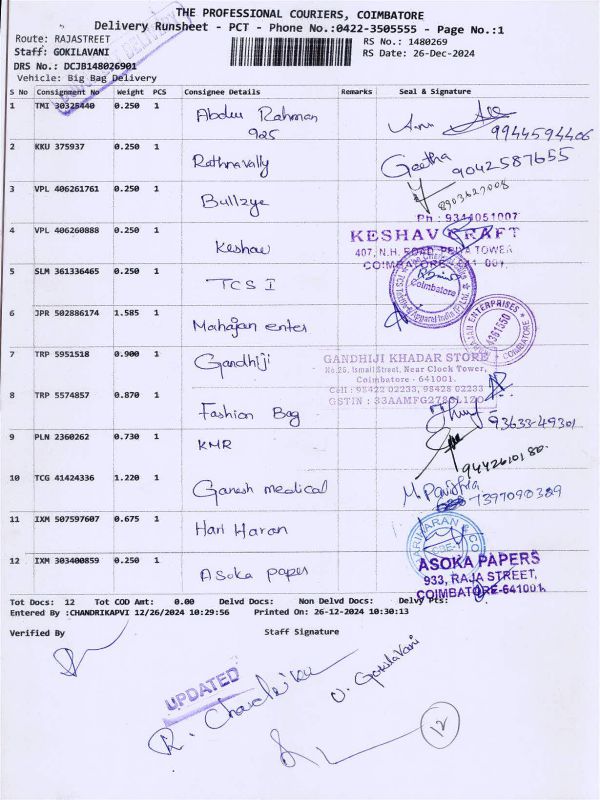 THE PROFESSIONAL COURIERS, COIMBATORE
Delivery Runsheet - PCT - Phone No.:0422-3505555 - Page No.:1
Route: RAJASTREET
RS No.: 1480269
Staff: GOKILAVANI
RS Date: 26-Dec-2024
DRS No.: DCJB148026901
Vehicle: Big Bag Delivery
S No Consignment No Weight PCS Consignee Details Remarks Seal & Signature
1 TMI 30325440 0.250 1 Abdul Rahman
925
9944594406
2 KKU 375937 0.250 1 Rathnavally Geetha
9042587655
3 VPL 406261761 0.250 1 Bullzye 8903627008
Ph : 9344051007
4 VPL 406260888 0.250 1 Keshav KESHAV KRAFT
407, N.H. ROAD, TOWER
COIMBATORE
5 SLM 361336465 0.250 1 TCS I Coimbatore
6 JPR 502886174 1.585 1 Mahajan enter ENTERPRISES COIMBATORE
7 TRP 5951518 0.900 1 Gandhiji GANDHIJI KHADAR STORE
No.25, Ismail Street, Near Clock Tower,
Coimbatore - 641001.
Cell : 98422 02233, 98428 02233
8 TRP 5574857 0.870 1 Fashion Bag 93633-49301
9 PLN 2360262 0.730 1 KMR 9442610180
10 TCG 41424336 1.220 1 Ganesh medical M. Pavithra
7397090389
11 IXM 507597607 0.675 1 Hari Haran
12 IXM 303400859 0.250 1 Asoka paper ASOKA PAPERS
933, RAJA STREET,
COIMBATORE-641001.
Tot Docs: 12 Tot COD Amt: 0.00 Delvd Docs: Non Delvd Docs: Delvy Pts:
Entered By :CHANDRIKAPVI 12/26/2024 10:29:56 Printed On: 26-12-2024 10:30:13
Verified By Staff Signature
UPDATED
R. Chandrika
V. Gokilavani
12